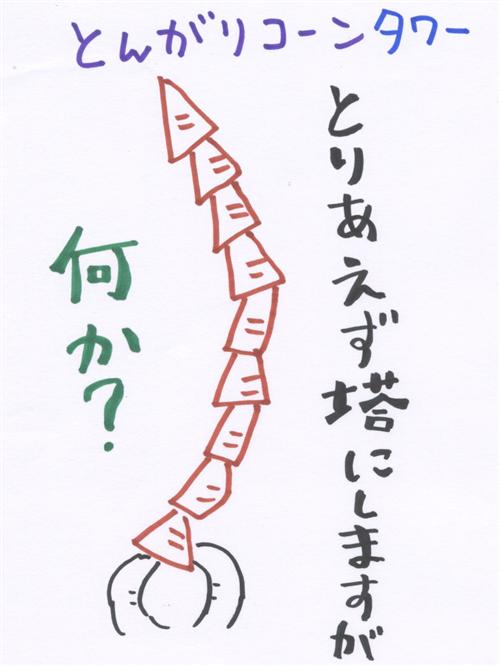 とんがりコーンタワー
とりあえず塔にしますが
何か?